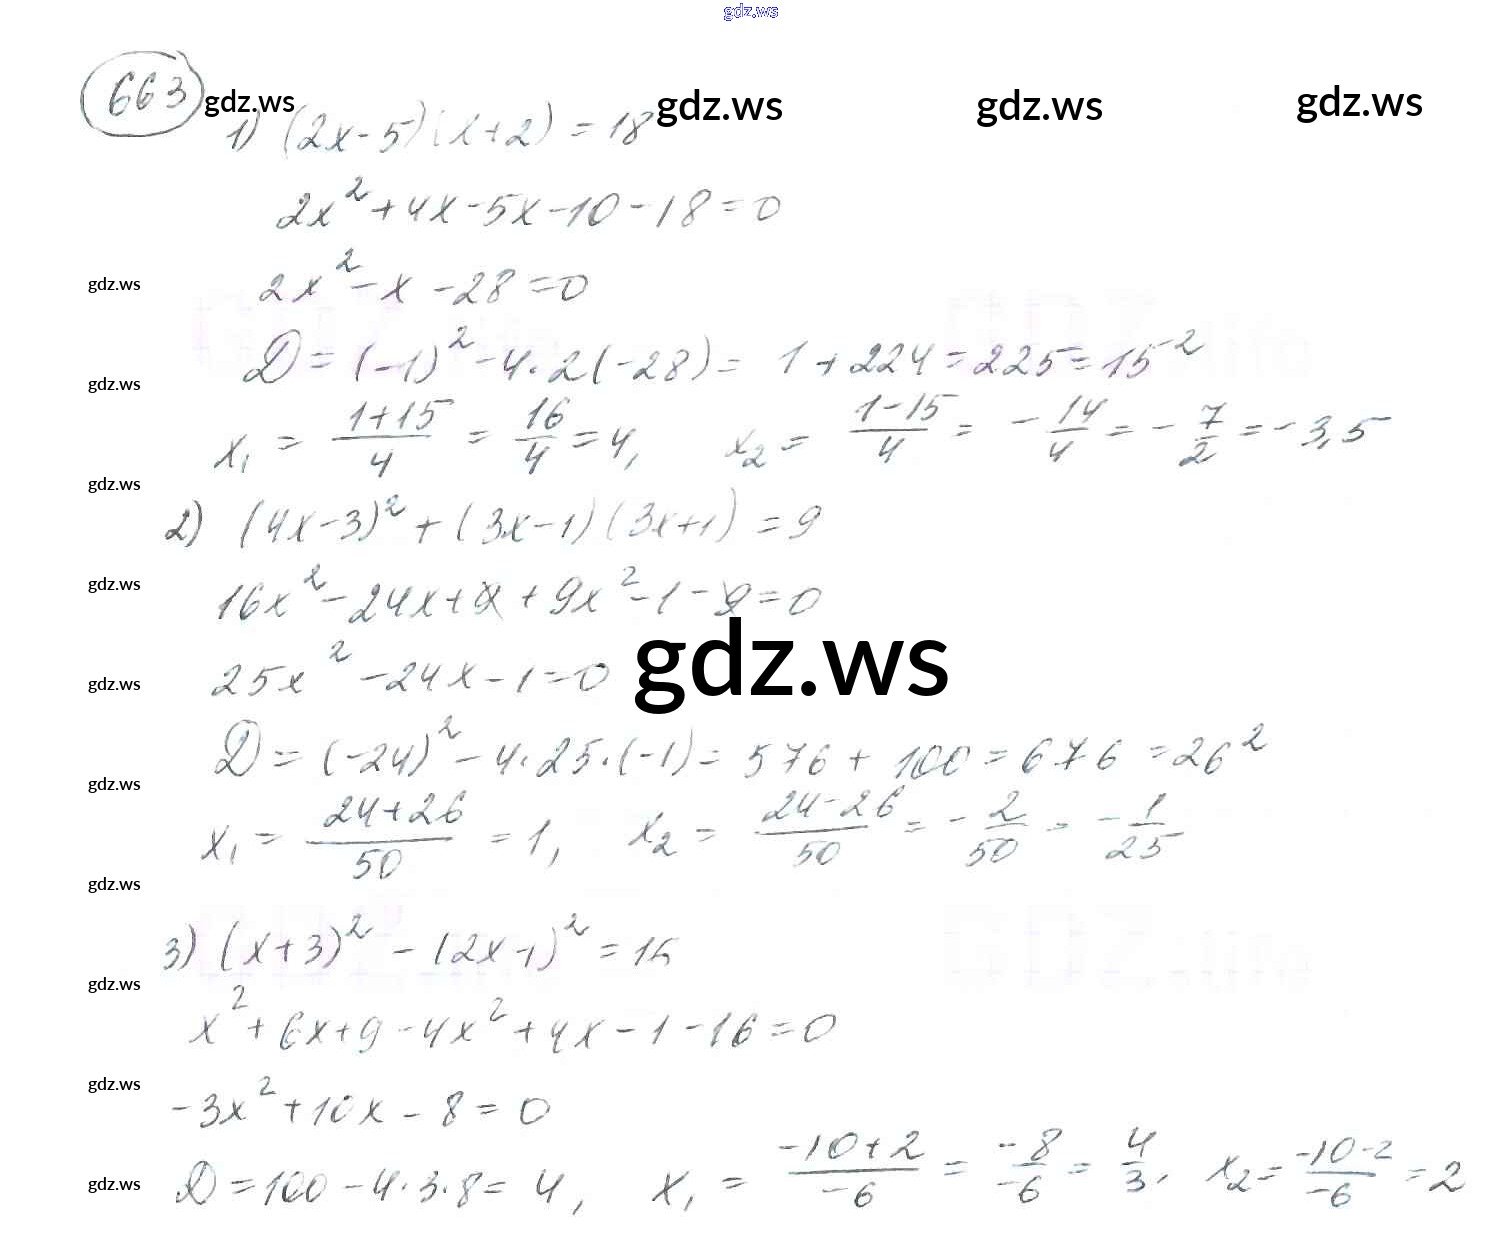 gdz.ws
663
gdz.ws gdz.ws gdz.ws gdz.ws
1) (2x-5)(x+2) = 18
2x² + 4x - 5x - 10 - 18 = 0
gdz.ws
2x² - x - 28 = 0
D = (-1)² - 4·2(-28) = 1 + 224 = 225 = 15²
gdz.ws
x₁ = (1+15)/4 = 16/4 = 4, x₂ = (1-15)/4 = -14/4 = -7/2 = -3,5
gdz.ws
2) (4x-3)² + (3x-1)(3x+1) = 9
gdz.ws
16x² - 24x + 9 + 9x² - 1 - 9 = 0
gdz.ws
25x² - 24x - 1 = 0
gdz.ws
D = (-24)² - 4·25·(-1) = 576 + 100 = 676 = 26²
gdz.ws
x₁ = (24+26)/50 = 1, x₂ = (24-26)/50 = -2/50 = -1/25
gdz.ws
3) (x+3)² - (2x-1)² = 16
gdz.ws
x² + 6x + 9 - 4x² + 4x - 1 - 16 = 0
gdz.ws
-3x² + 10x - 8 = 0
gdz.ws
D = 100 - 4·3·8 = 4, x₁ = (-10+2)/-6 = -8/-6 = 4/3, x₂ = (-10-2)/-6 = 2